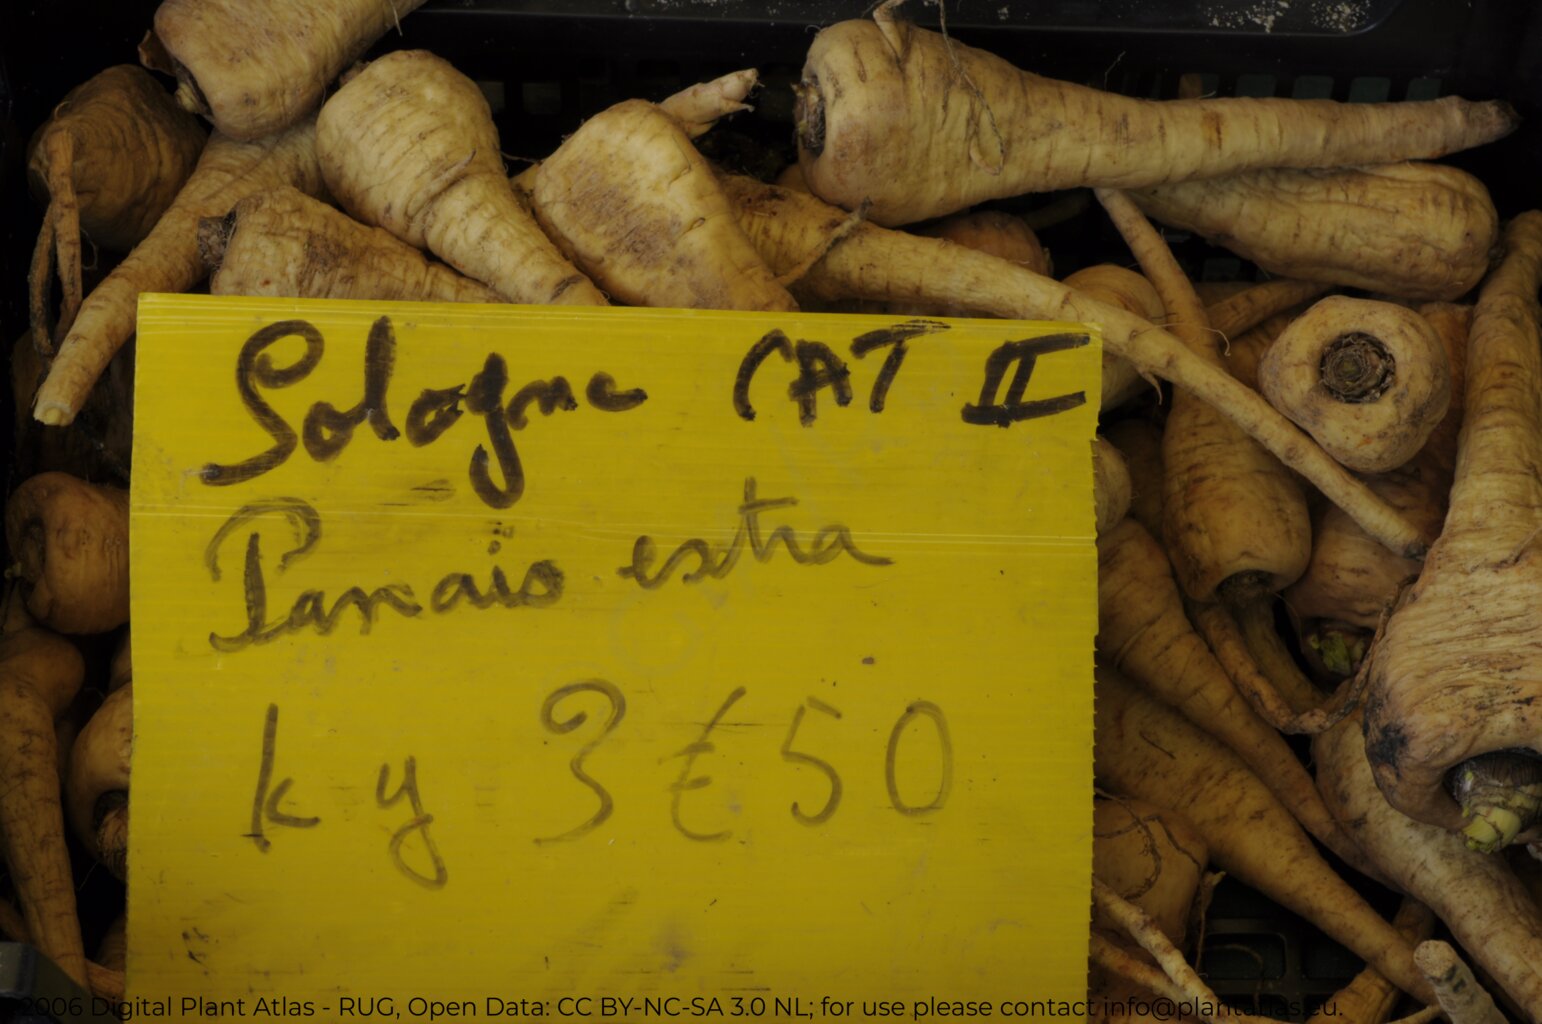 Sologne CAT II
Panais extra
kg 3€50
2006 Digital Plant Atlas - RUG, Open Data: CC BY-NC-SA 3.0 NL; for use please contact info@plantatlas.eu.